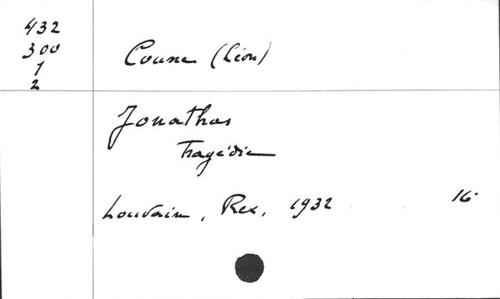 432
300
1
2
Coune (Léon)
Jonathas
Tragédie
Louvain, Rex, 1932 16°